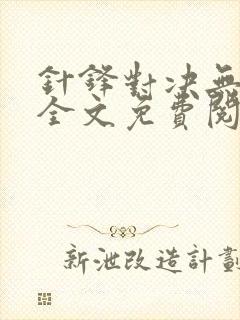 針鋒對決無
全文免費閱
新泄改造計劃